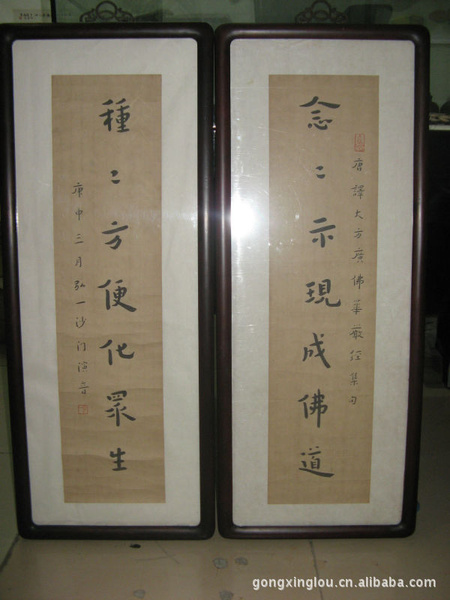 唐譯大方廣佛華嚴經集句
念〻示現成佛道
種〻方便化眾生
庚申三月弘一沙门演音
gongxinglou.cn.alibaba.com